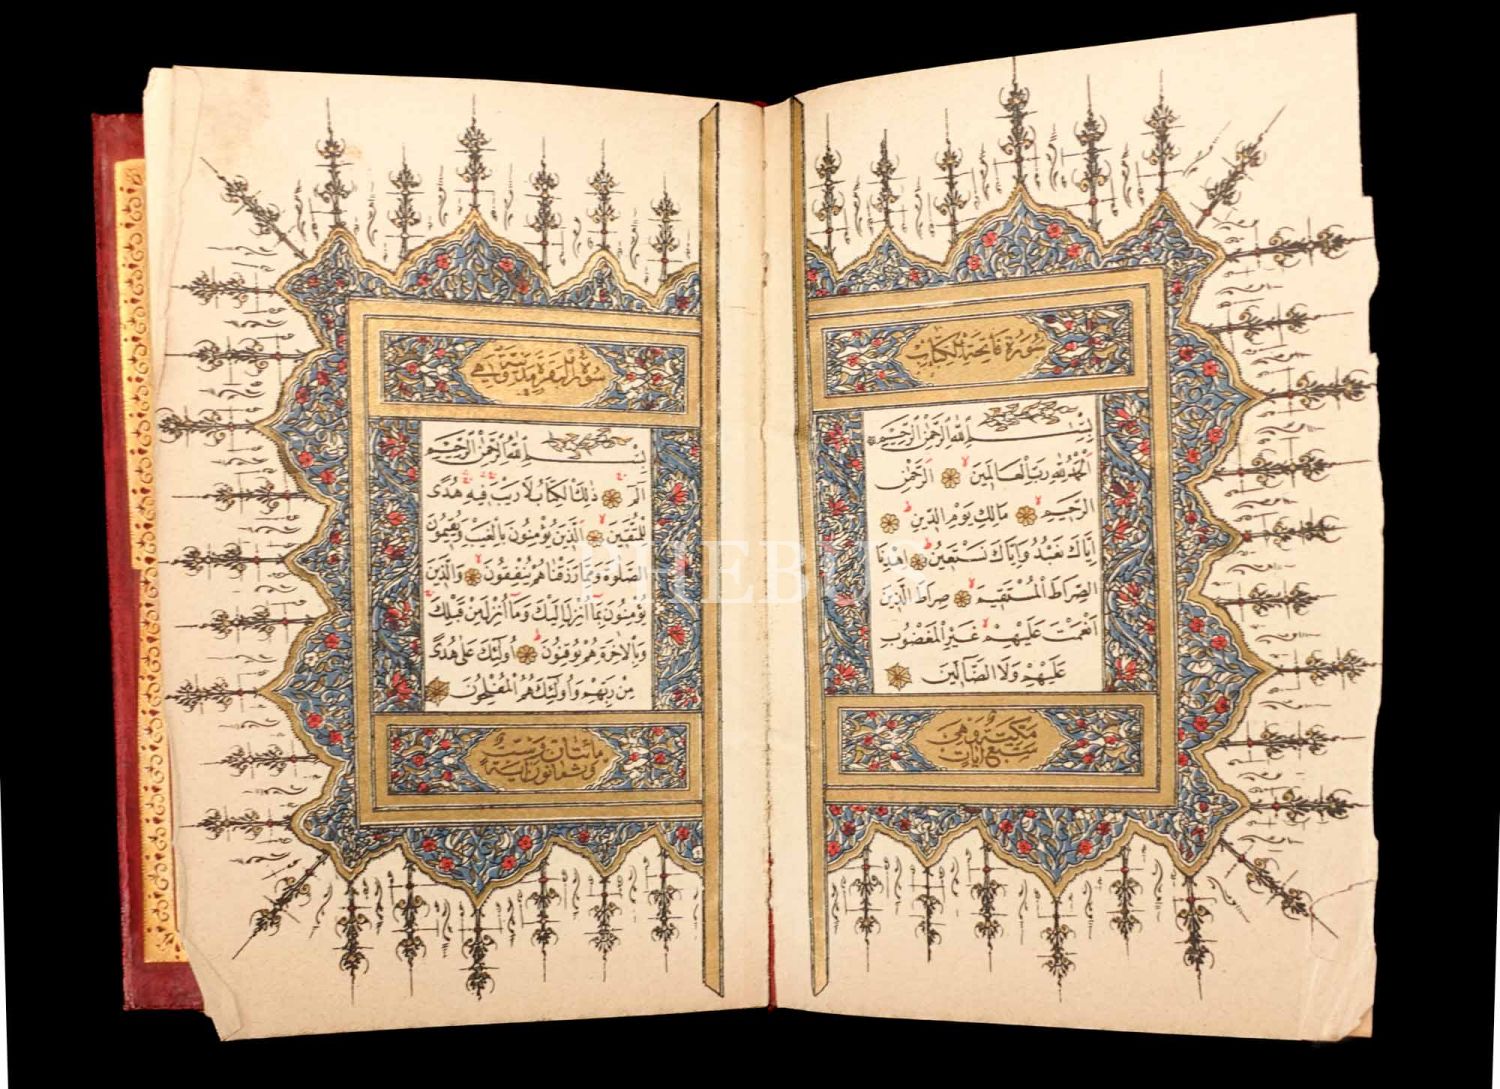 سورة فاتحة الكتاب
بسم الله الرحمن الرحيم
الحمد لله رب العالمين الرحمن
الرحيم مالك يوم الدين
اياك نعبد واياك نستعين اهدنا
الصراط المستقيم صراط الذين
انعمت عليهم غير المغضوب
عليهم ولا الضالين
مكية وهي
سبع ايات
سورة البقرة مدنية وهي
بسم الله الرحمن الرحيم
الم ذلك الكتاب لا ريب فيه هدى
للمتقين الذين يؤمنون بالغيب ويقيمون
الصلوة ومما رزقناهم ينفقون والذين
يؤمنون بما انزل اليك وما انزل من قبلك
وبالاخرة هم يوقنون اولئك على هدى
من ربهم واولئك هم المفلحون
مائتان وست
وثمانون اية
PHEBUS